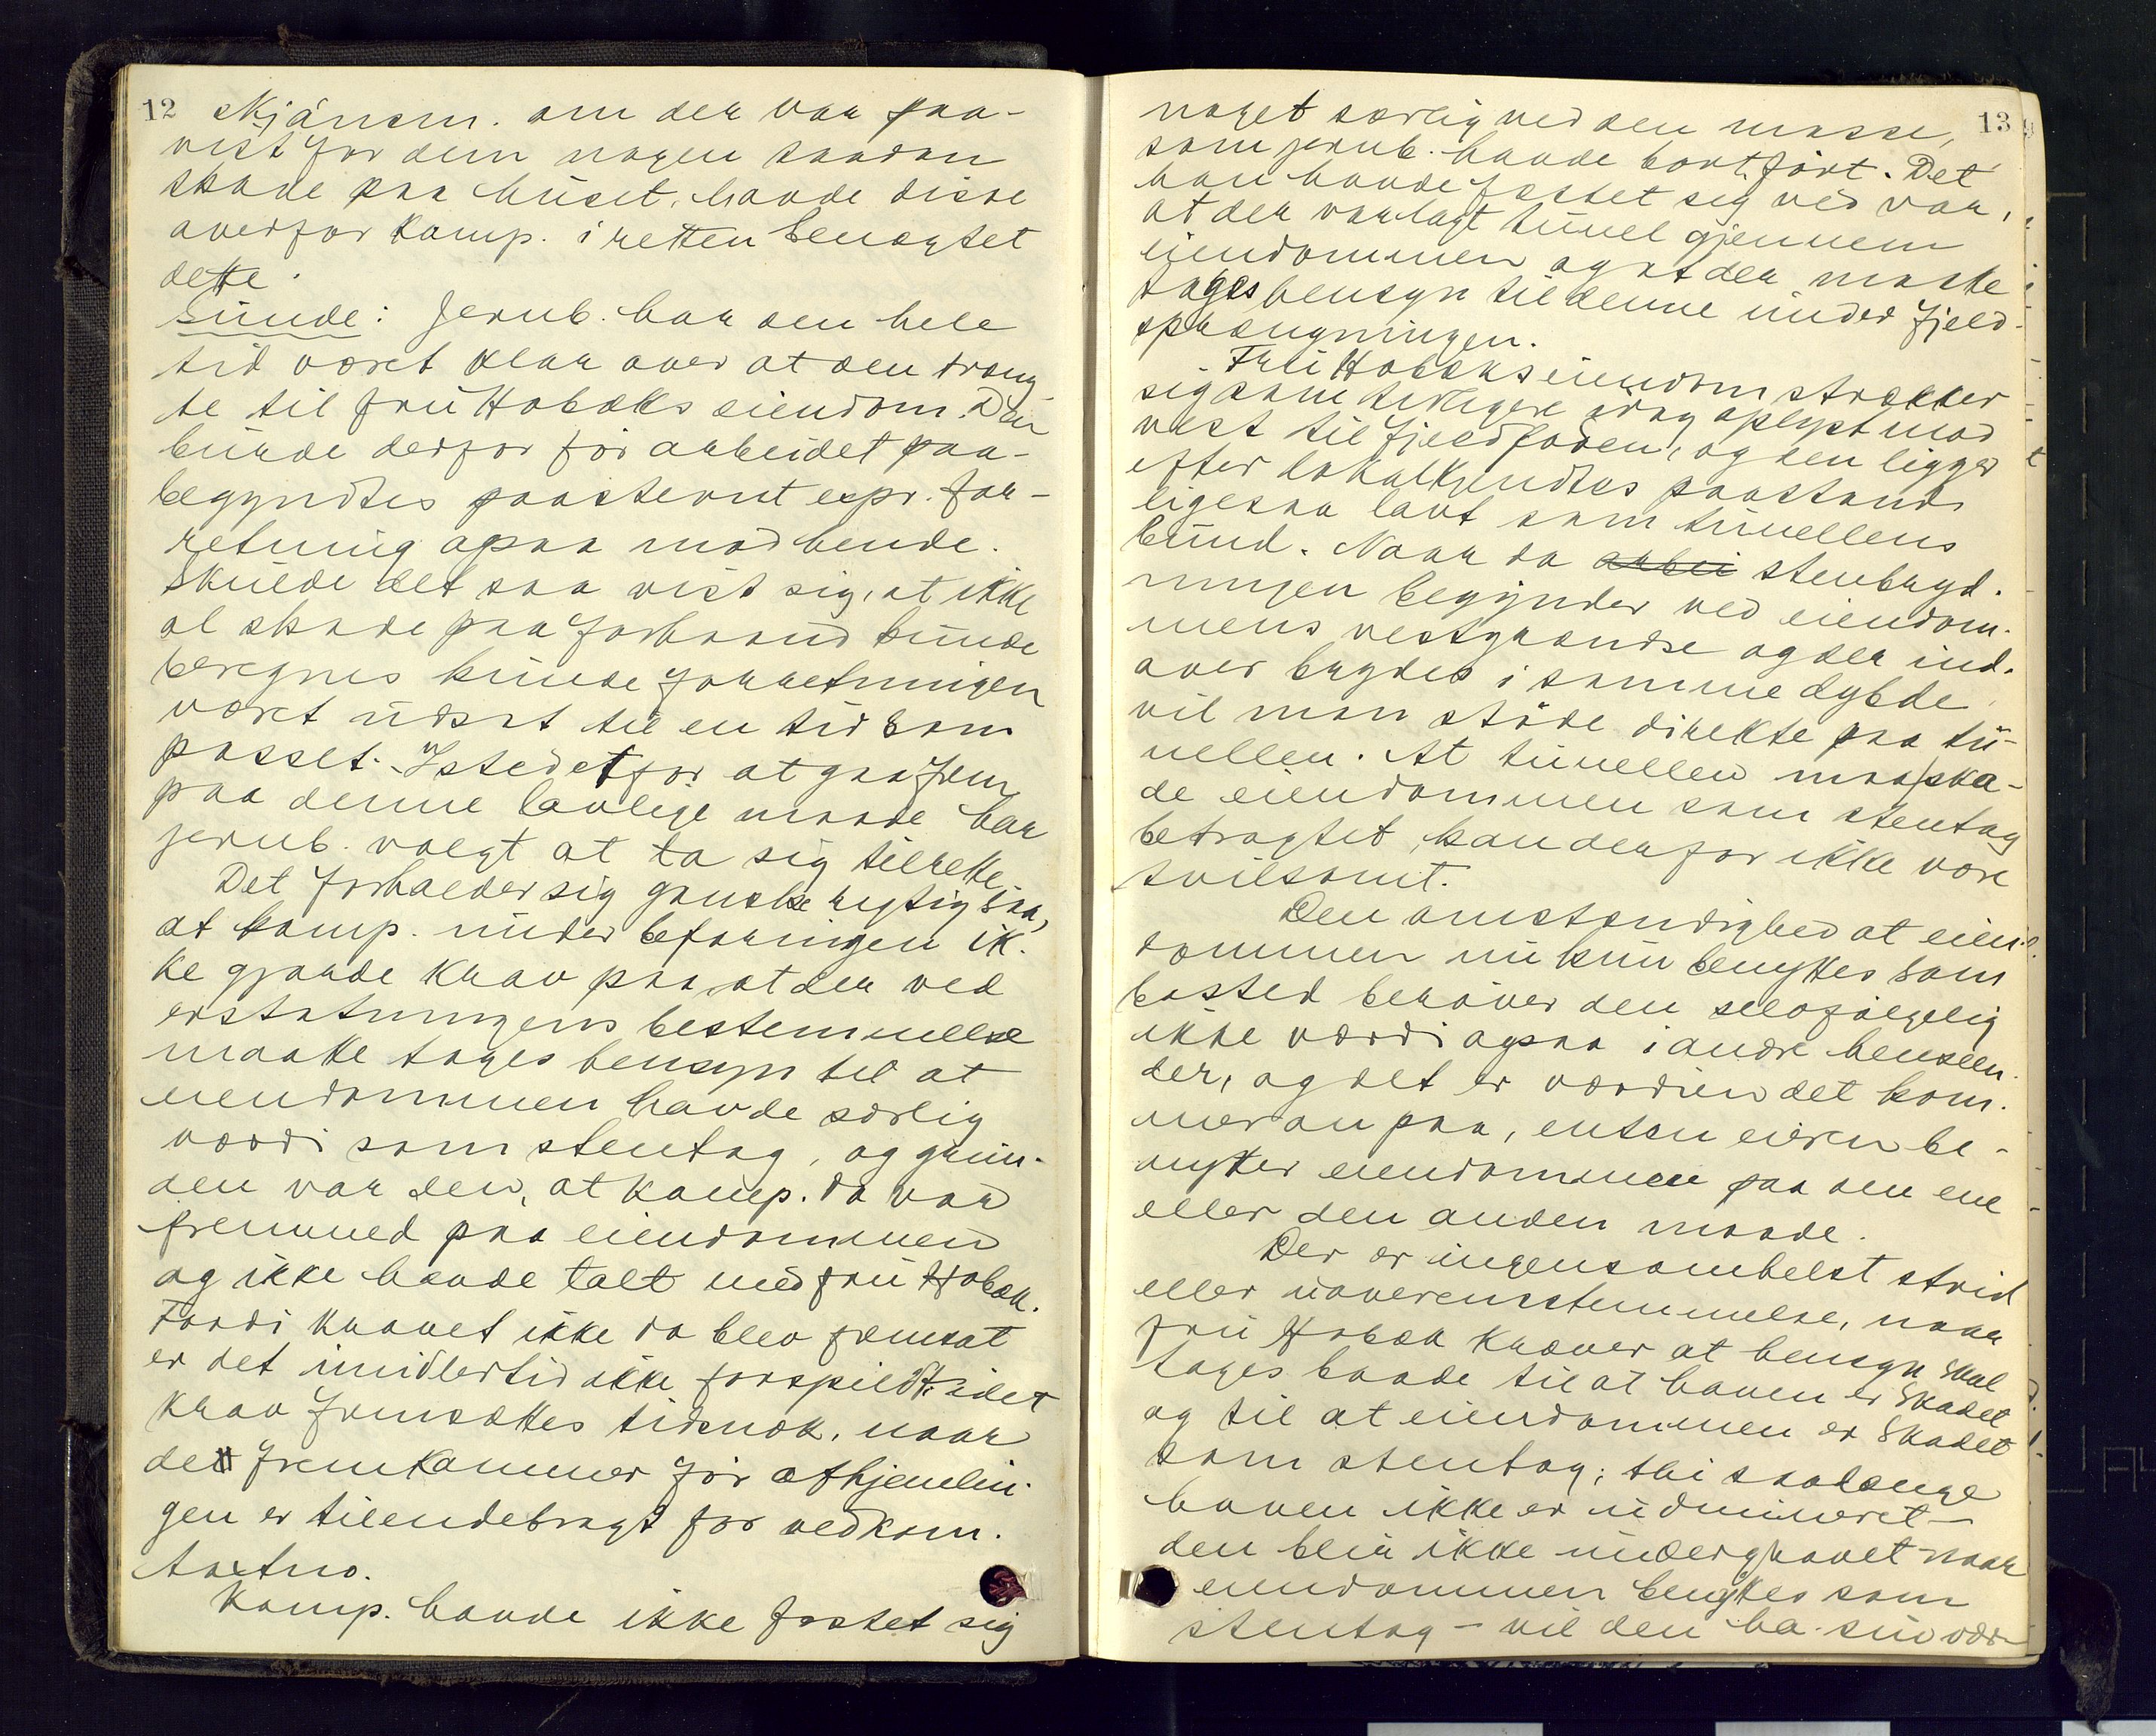 12
skjönsm. om der var paa-
vist for dem nogen saadan
skade paa huset, havde disse
overfor Komp. i retten benegtet
dette.
Sunde: Jernb. har den hele
tid været klar over at den træng-
te til fru Hobæks eiendom. Den
burde derfor för arbeidet paa-
begyndtes paastevnt expr. for-
retning ogsaa mod hende.
Skulde det saa vist sig, at ikke
al skade paa forhaand kunde
beregnes kunde forretningen
været udsat til en tid som
passet. Istedetfor at gaa frem
paa denne lovlige maade har
jernb. valgt at ta sig tilrette.
Det forholder sig ganske rigtig saa,
at komp. under befaringen ik-
ke gjorde krav paa, at der ved
erstatningens bestemmelse
maatte tages hensyn til at
eiendommen havde særlig
værdi som stentag, og grun-
den var den, at Komp. da var
fremmed paa eiendommen
og ikke havde talt med fru Hobæk.
Fordi kravet ikke da blev fremsat
er det imidlertid ikke forspildt, idet
krav fremsættes tidsnok, naar
det fremkommer för afhjemlin-
gen er tilendebragt for vedkom.
taxtno.
Komp. havde ikke fæstet sig
13
noget særlig ved den masse,
som jernb. havde bortfört. Det
han havde fæstet sig ved var,
at der var lagt tunel gjennem
eiendommen og at der maatte
tages hensyn til denne under fjeld-
sprængningen.
Fru Hobæks eiendom strækker
sig som tidligere idag oplyst mod
vest til fjeldfoden, og den ligger
efter lokalkjendtes paastand
ligesaa lavt som tunellens
bund. Naar da arbei stenbryd-
ningen begynder ved eiendom-
mens vestgrændse og der ind-
over brydes i samme dybde
vil man støde direkte paa tu-
nellen. At tunellen maa ska-
de eiendommen som stentag
betragtet, kan derfor ikke være
tvilsomt.
Den omstændighed at eien-
dommen nu kun benyttes som
bosted berøver den selvfølgelig
ikke værdi ogsaa i andre henseen-
der, og det er værdien det kom-
mer an paa, enten eieren be-
nytter eiendommen paa den ene
eller den anden maade.
Der er ingensomhelst strid
eller uoverensstemmelse, naar
fru Hobæk kræver at hensyn skal
tages baade til at haven er skadet
og til at eiendommen er skadet
som stentag; thi saalænge
haven ikke er udmineret –
den blir ikke undergravet naar
eiendommen benyttes som
stentag – vil den ha sin vær-